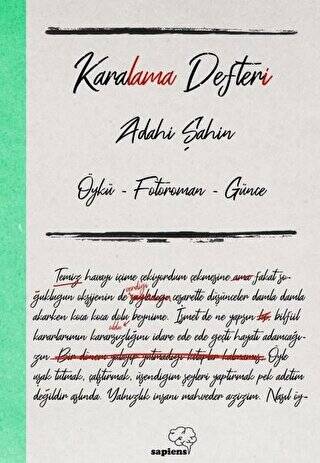 Karalama Defteri
Adahi Şahin
Öykü - Fotoroman - Günce
Temiz havayı içime çekiyordum çekmesine ama fakat so-
verdiği
ğukluğun oksijenin de sağladığı cesaretle düşünceler damla damla
akarken koca koca dolu beynime. İsmet de ne yapsın bilfiil
oldu
kararlarımın kararsızlığını idare ede ede geçti hayatı adamcağı-
zın. Bir dönem yalayıp yutmadığı kitaplar kalmamış. Öyle
uşak tutmak, çalıştırmak, üşendiğim şeyleri yaptırmak pek adetim
değildir aslında. Yalnızlık insanı mahveder azizim. Nasıl iy-
sapiens